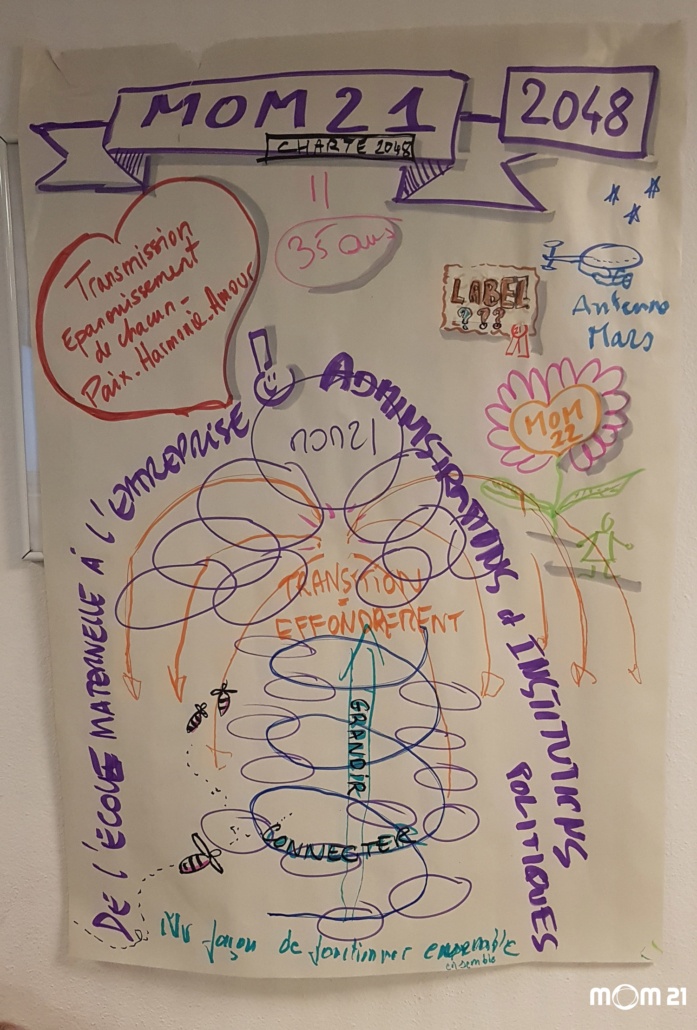 MOM 21
2048
CHARTE 2048
35 ans
Transmission
Epanouissement
de chacun -
Paix - Harmonie - Amour
LABEL
???
Antenne
Mars
MOM
22
mom21
DE L'ÉCOLE MATERNELLE À L'ENTREPRISE
ADMINISTRATIONS & INSTITUTIONS
POLITIQUES
TRANSITION -
EFFONDREMENT
GRANDIR
CONNECTER
façon de fonctionner ensemble
ensemble
MOM 21